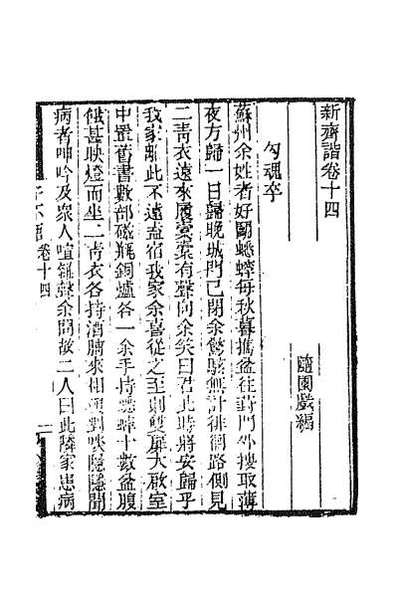 新齊諧卷十四
隨園戲編
勾魂卒
蘇州余姓者好鬭蟋蟀每秋暮攜盆往葑門外搜取薄
夜方歸一日歸晚城門已閉余驚駭無計徘徊路側見
二青衣遠來履橐橐有聲向余笑曰君此時將安歸乎
我家離此不遠盍宿我家余喜從之至則雙扉大啟室
中置舊書數部磁瓶銅爐各一余手持蟋蟀十數盆腹
餓甚映燈而坐二青衣各持酒脯來相與對啖隱隱聞
病者呻吟及衆人喧雜聲余問故二人曰此隣家患病
子不語 卷十四
一